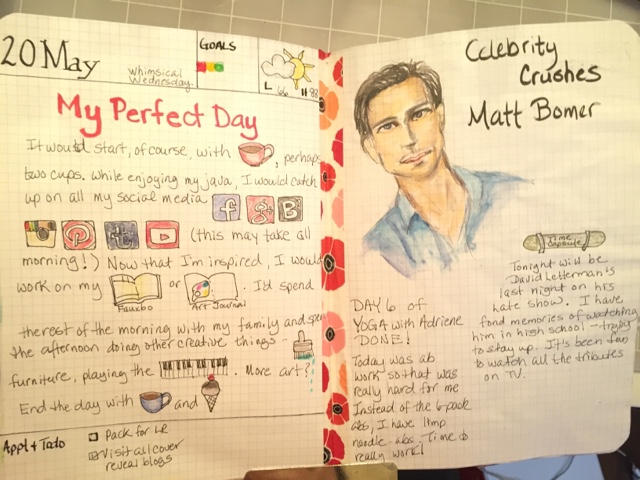 20 May
Whimsical
Wednesday
GOALS
L 66 H 88
My Perfect Day
It would start, of course, with , perhaps
two cups. While enjoying my java, I would catch
up on all my social media f g+ B
t (this may take all
morning!) Now that I'm inspired, I would
work on my or . I'd spend
Fauxbo Art Journal
the rest of the morning with my family and spend
the afternoon doing other creative things -
furniture, playing the . More art?
End the day with and
Appt + Todo
Pack for LR
Visit all cover
reveal blogs
Celebrity
Crushes
Matt Bomer
TIME
CAPSULE
Tonight will be
David Letterman's
last night on his
late show. I have
fond memories of watching
him in high school - trying
to stay up. It's been fun
to watch all the tributes
on TV.
DAY 6 of
YOGA with Adriene
DONE!
Today was ab
work so that was
really hard for me
Instead of the 6-pack
abs, I have limp
noodle abs. Time to
really work!